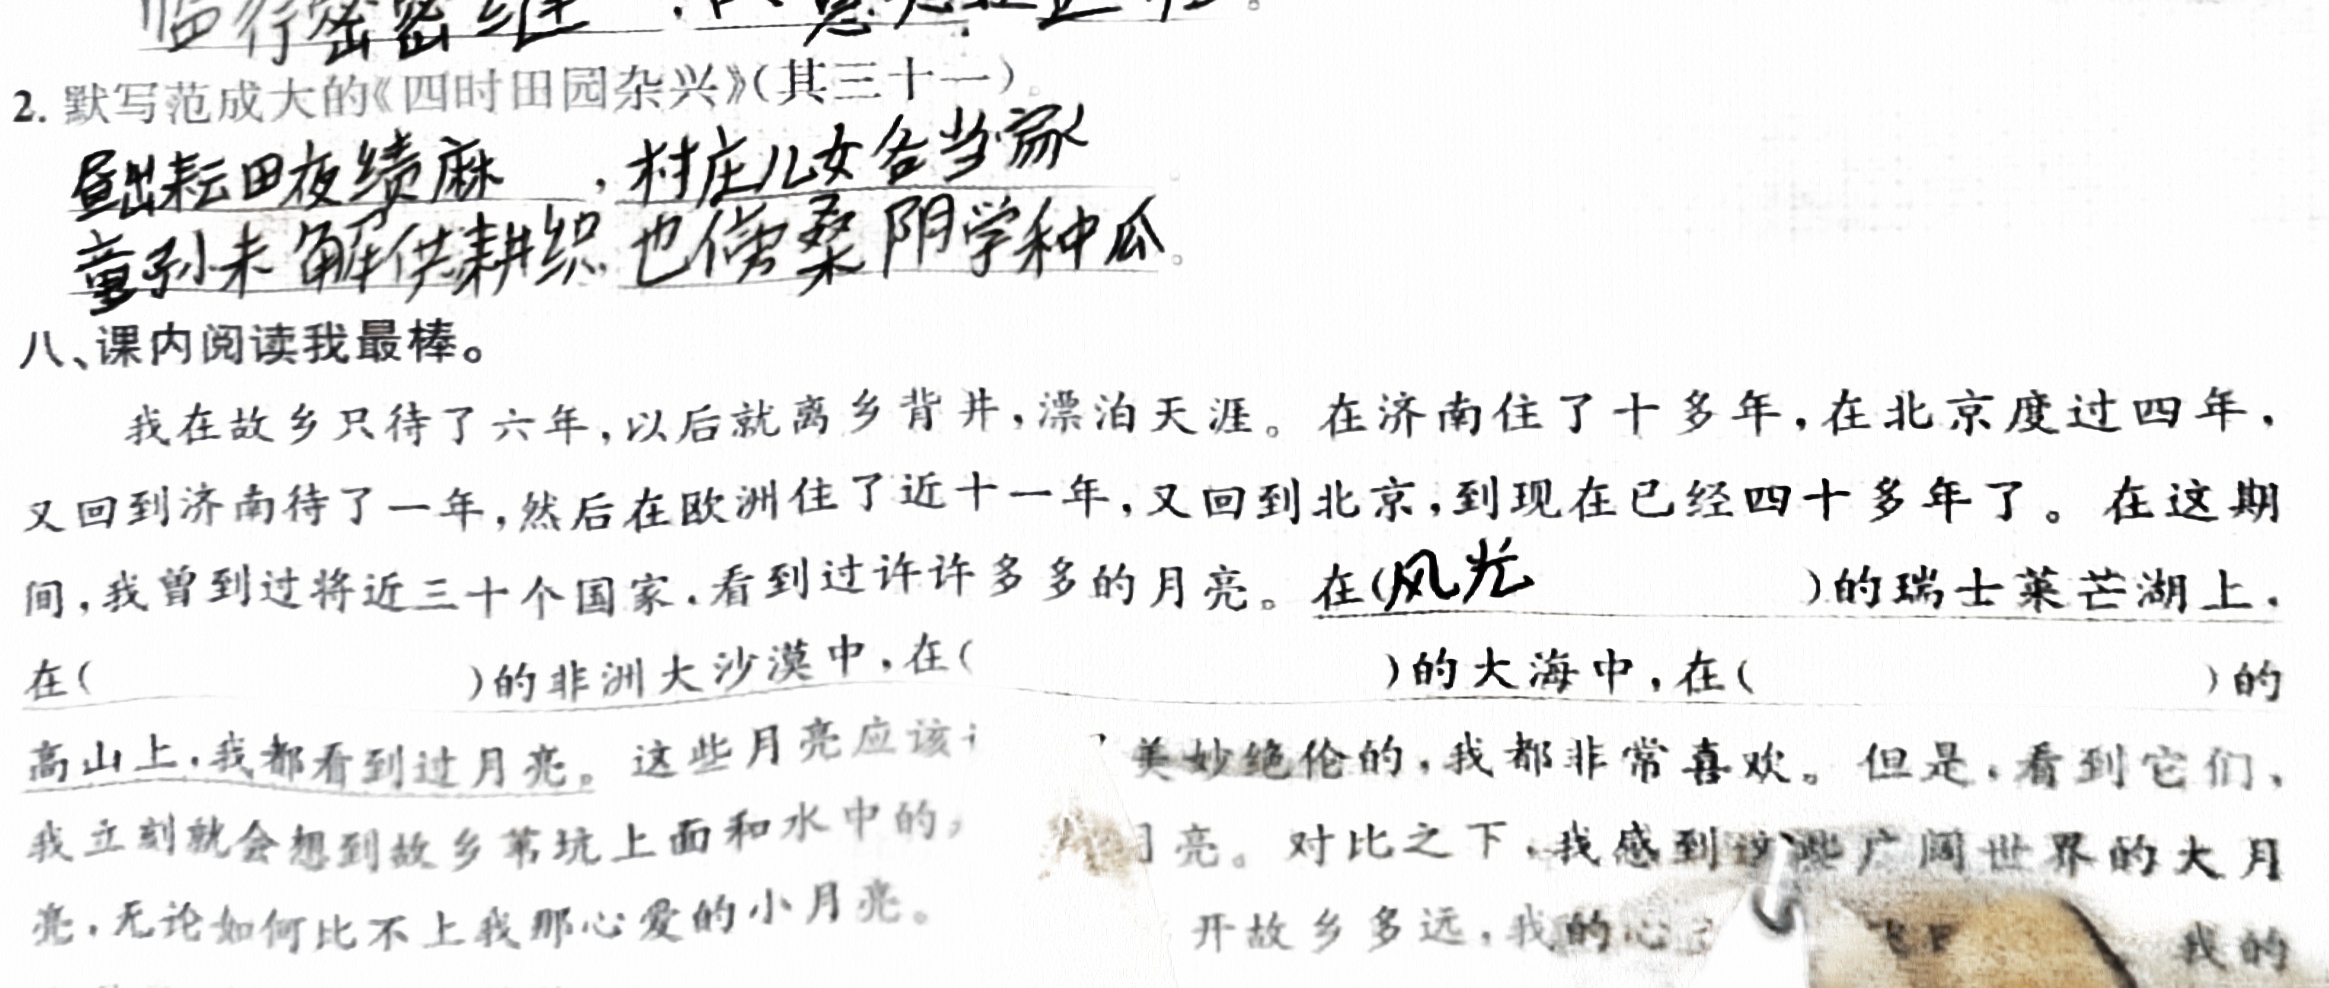 临行密密缝
2. 默写范成大的《四时田园杂兴》(其三十一)。
昼出耘田夜绩麻,村庄儿女各当家
童孙未解供耕织 也傍桑阴学种瓜。
八、课内阅读我最棒。
我在故乡只待了六年,以后就离乡背井,漂泊天涯。在济南住了十多年,在北京度过四年,
又回到济南待了一年,然后在欧洲住了近十一年,又回到北京,到现在已经四十多年了。在这期
间,我曾到过将近三十个国家,看到过许许多多的月亮。在(风光)的瑞士莱芒湖上,
在( )的非洲大沙漠中,在( )的大海中,在( )的
高山上,我都看到过月亮。这些月亮应该 美妙绝伦的,我都非常喜欢。但是,看到它们,
我立刻就会想到故乡苇坑上面和水中的 亮。对比之下,我感到这些广阔世界的大月
亮,无论如何比不上我那心爱的小月亮。 开故乡多远,我的心 我的